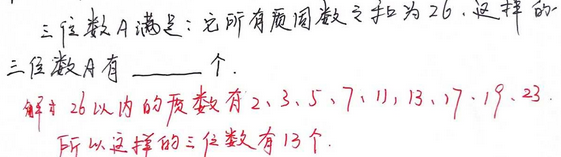 三位数A满足:它所有质因数之和为26.这样的
三位数A有______个.
解:26以内的质数有2、3、5、7、11、13、17、19、23.
所以这样的三位数有13个.